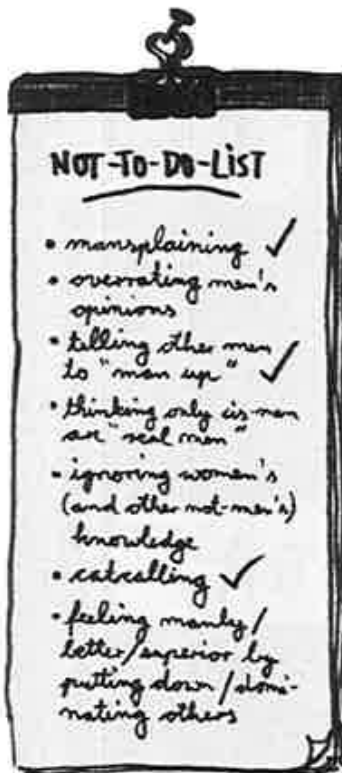 NOT-TO-DO-LiST
• mansplaining ✓
• overrating men's
opinions
• telling other men
to "man up" ✓
• thinking only cis-men
are "real men"
• ignoring women's
(and other not-men's)
knowledge
• catcalling ✓
• feeling manly/
better/superior by
putting down/domi-
nating others